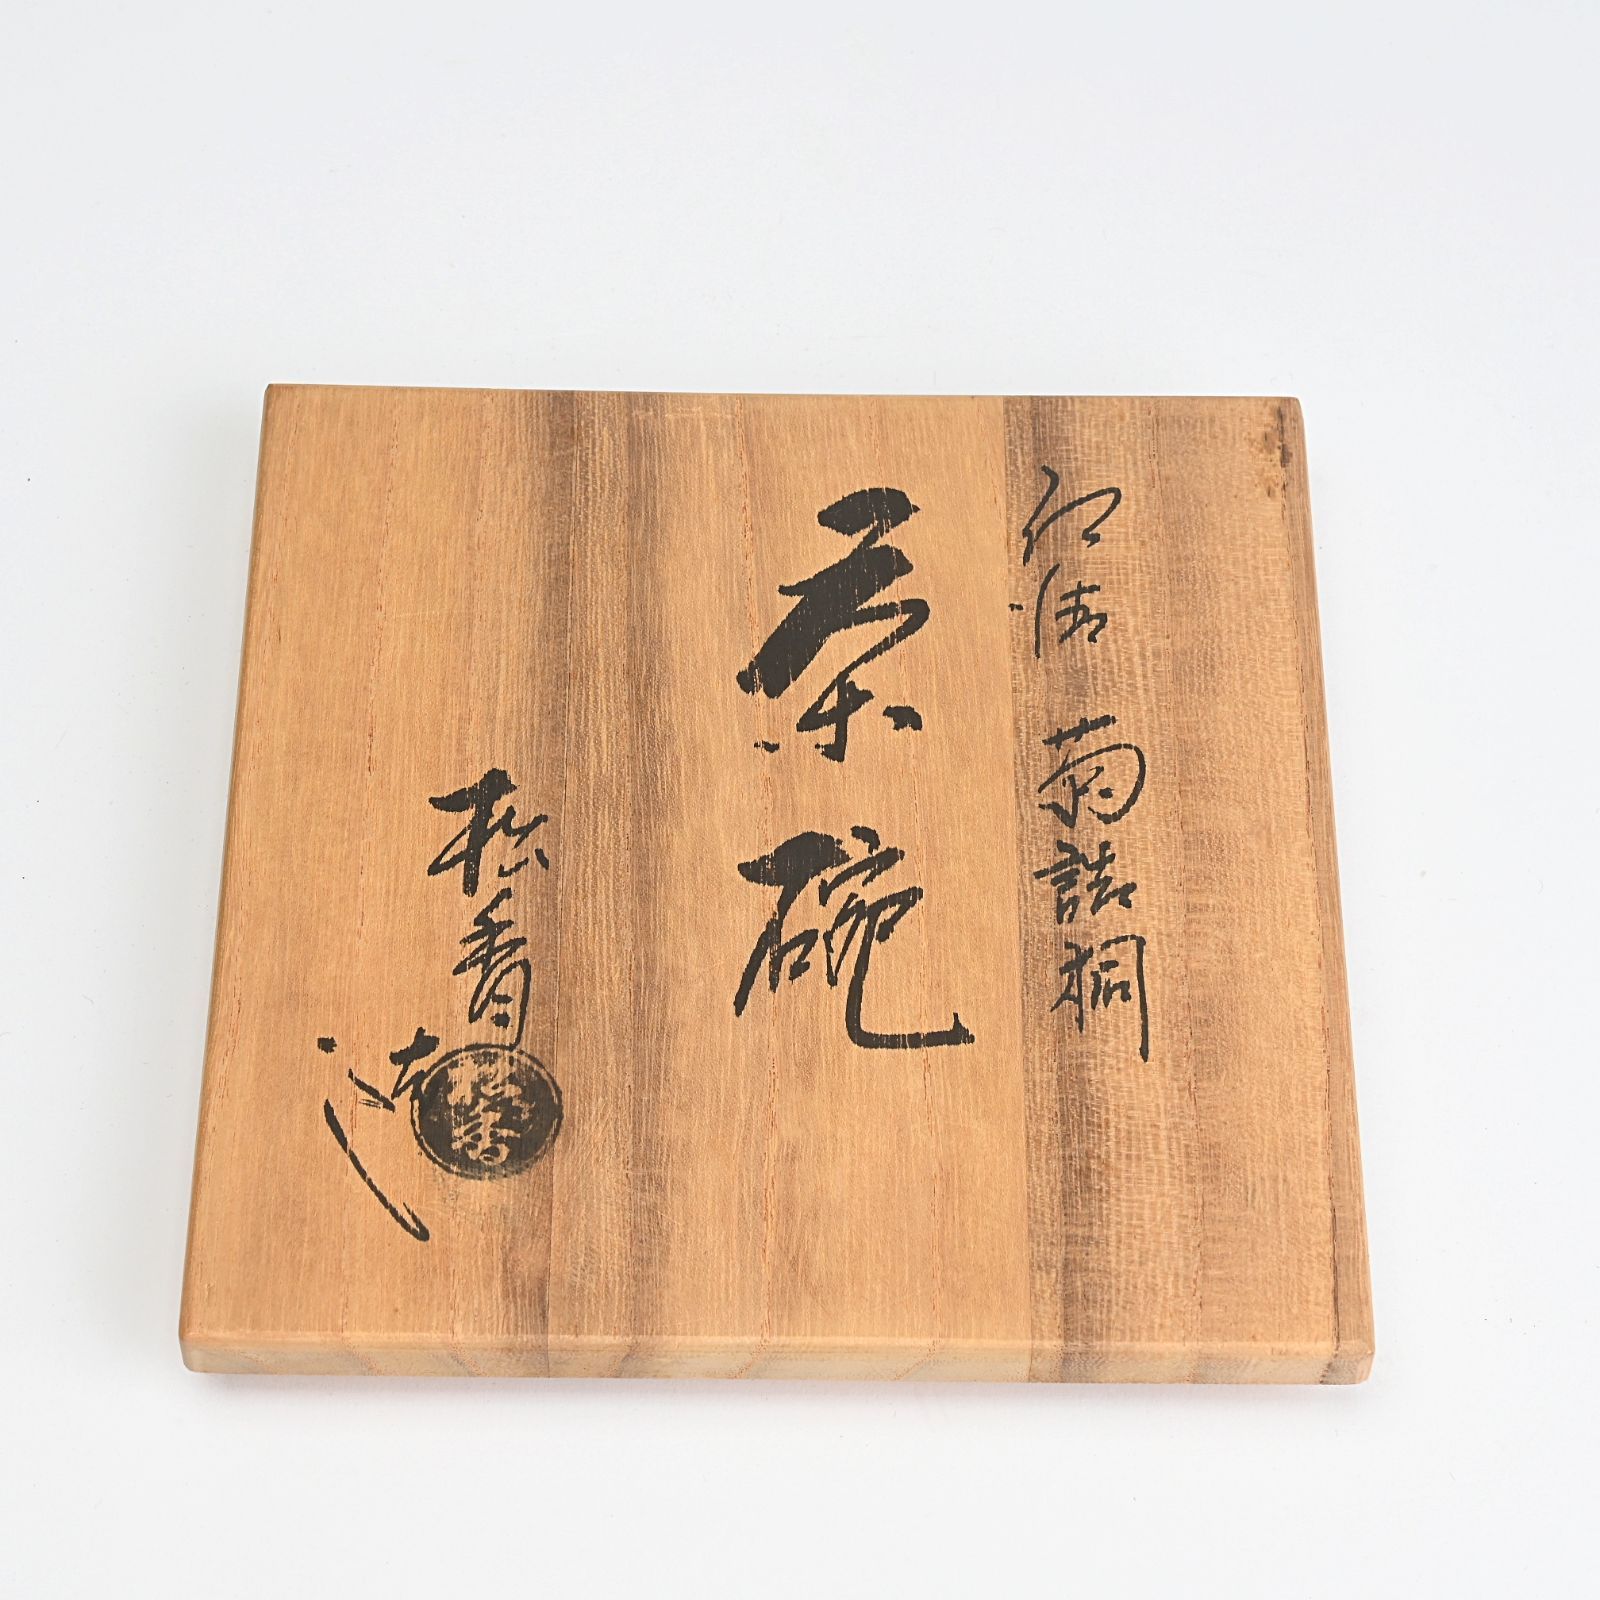 仁清 菊詰桐
茶碗
松香造
松香